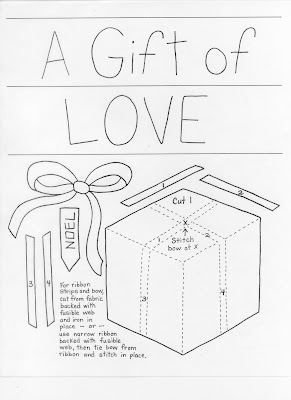 A Gift of
LOVE
1
2
Cut 1
X
1.
Stitch
bow at X
2
NOEL
3
4
3
4
For ribbon
strips and bow,
cut from fabric
backed with
fusible web
and iron in
place – or –
use narrow ribbon
backed with fusible
web, then tie bow from
ribbon and stitch in place.